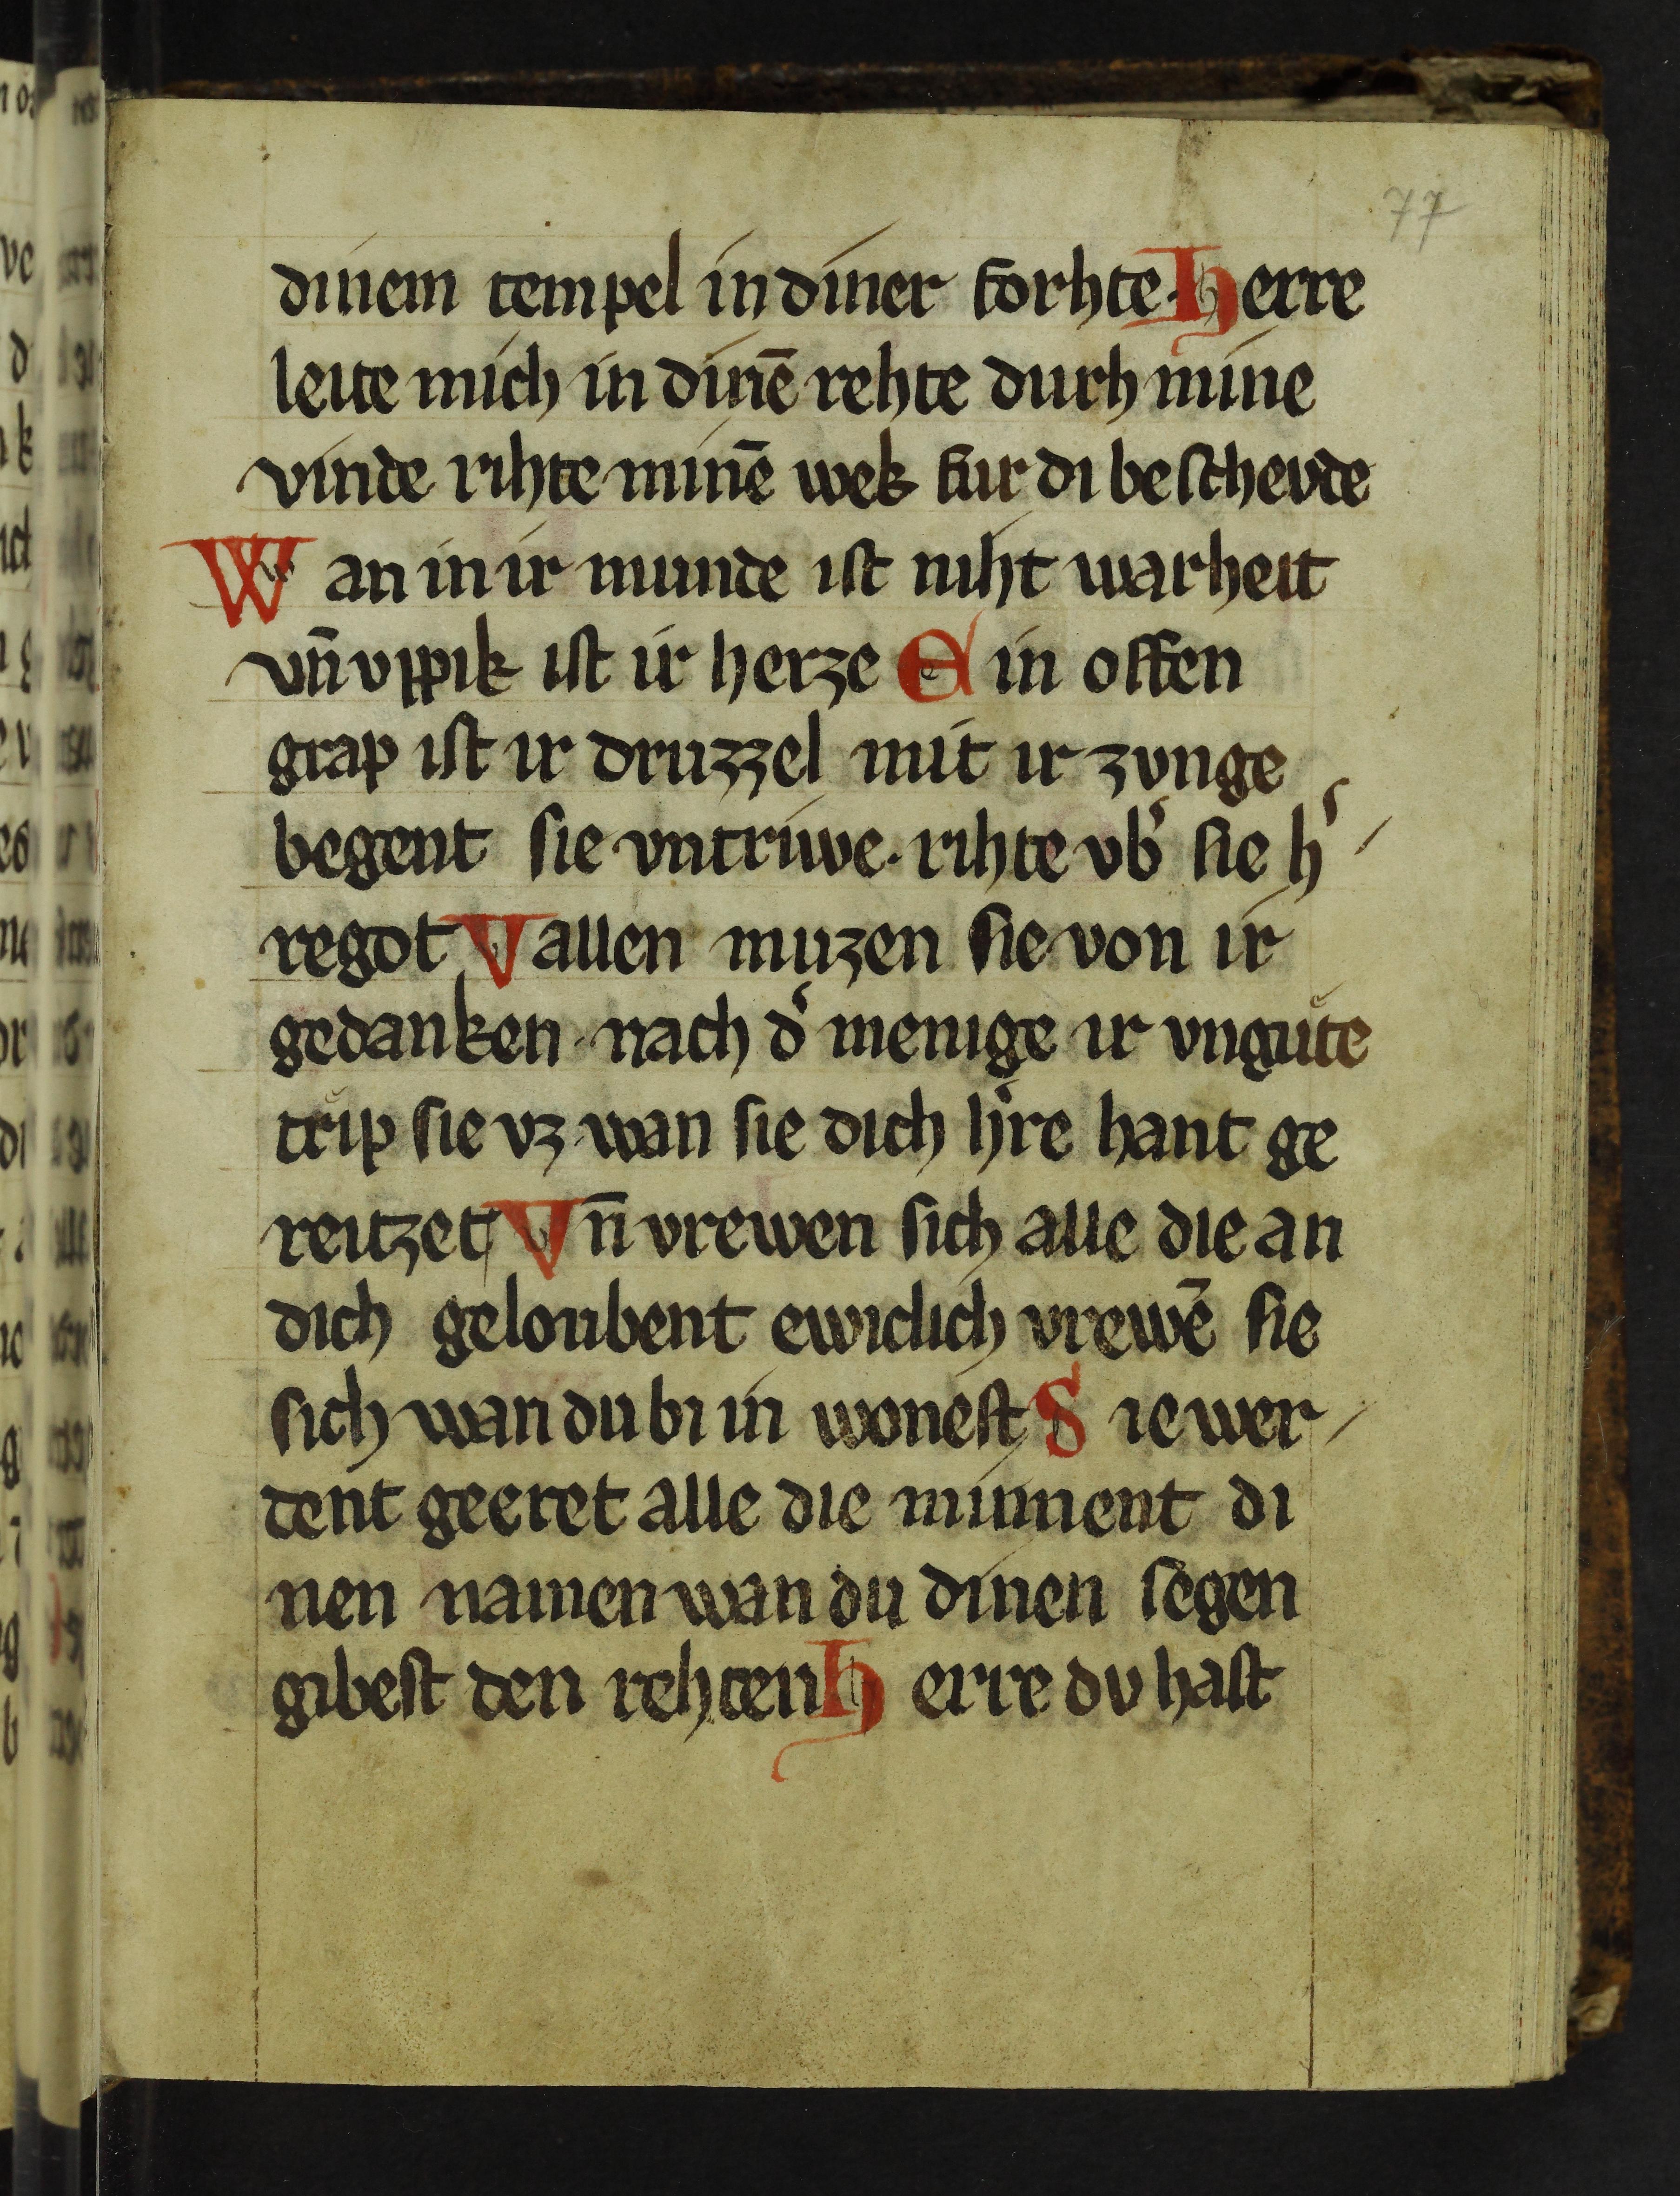 77
dinem tempel in diner forhte. Herre
leite mich in dinē rehte durh mine
vinde rihte minē wek fur di bescheude
Wan in ir munde ist niht warheit
vn̄ vppik ist ir herze Ein offen
grap ist ir druzzel mit ir zvnge
begent sie vntriwe. rihte vb͛ sie h͛
regot Vallen muzen sie von ir
gedanken nach d͛ menige ir vngute
trip sie vz wan sie dich h͛re hant ge
reitzet Vn̄ vrewen sich alle die an
dich geloubent ewiclich vrewē sie
sich wan du bi in wonest Sie wer
dent geeret alle die minnent di
nen namen wan du dinen segen
gibest den rehten Herre dv hast